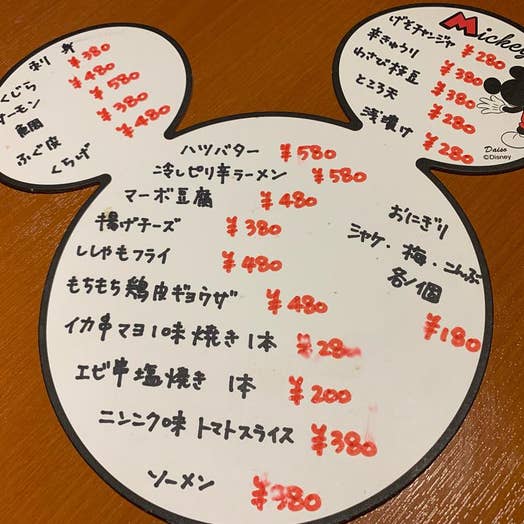 刺 身
くじら ¥380
ーモン ¥480
¥580
ふぐ皮 ¥380
くらげ ¥480
Mickey
げそチャンジャ ¥280
辛きゅうり ¥380
わさび枝豆 ¥380
ところ天 ¥280
浅漬け ¥280
Daiso
©Disney
ハツバター ¥580
冷しピリ辛ラーメン ¥580
マーボ豆腐 ¥480
揚げチーズ ¥380
ししゃもフライ ¥480
もちもち鶏皮ギョウザ ¥480
イカ串マヨ味焼き1本 ¥280
エビ串塩焼き 1本 ¥200
ニンニク味トマトスライス ¥380
ソーメン ¥380
おにぎり
シャケ・梅・こんぶ
各1個
¥180